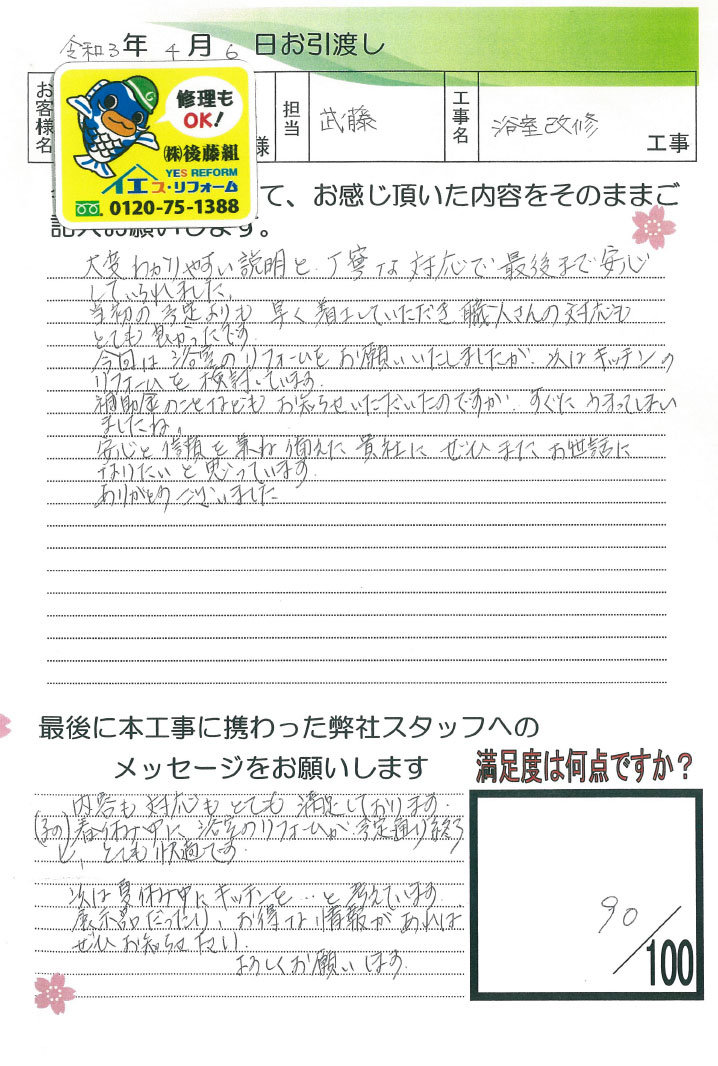 令和3年 4月 6日お引渡し
お客様名
様
担当
武藤
工事名
浴室改修
工事
修理も
OK!
㈱後藤組
YES REFORM
イエス・リフォーム
0120-75-1388
て、お感じ頂いた内容をそのままご
記入お願いします。
大変わかりやすい説明と、丁寧な対応で最後まで安心
していられました。
当初の予定よりも早く着工していただき職人さんの対応も
とても良かったです。
今回は浴室のリフォームをお願いいたしましたが、次はキッチンの
リフォームを検討しています。
補助金のことなどもお知らせいただいたのですが、すぐにうまってしまい
ましたね。
安心と信頼を兼ね備えた貴社にぜひまたお世話に
なりたいと思っています。
ありがとうございました
最後に本工事に携わった弊社スタッフへの
メッセージをお願いします
満足度は何点ですか？
内容も対応もとても満足しております。
(子の)春休み中に、浴室のリフォームが予定通り終了
し、とても快適です。
次は夏休み中にキッチンを…と考えています。
展示品だったり、お得な情報があれば、
ぜひお知らせ下さい。
よろしくお願いします。
90/100